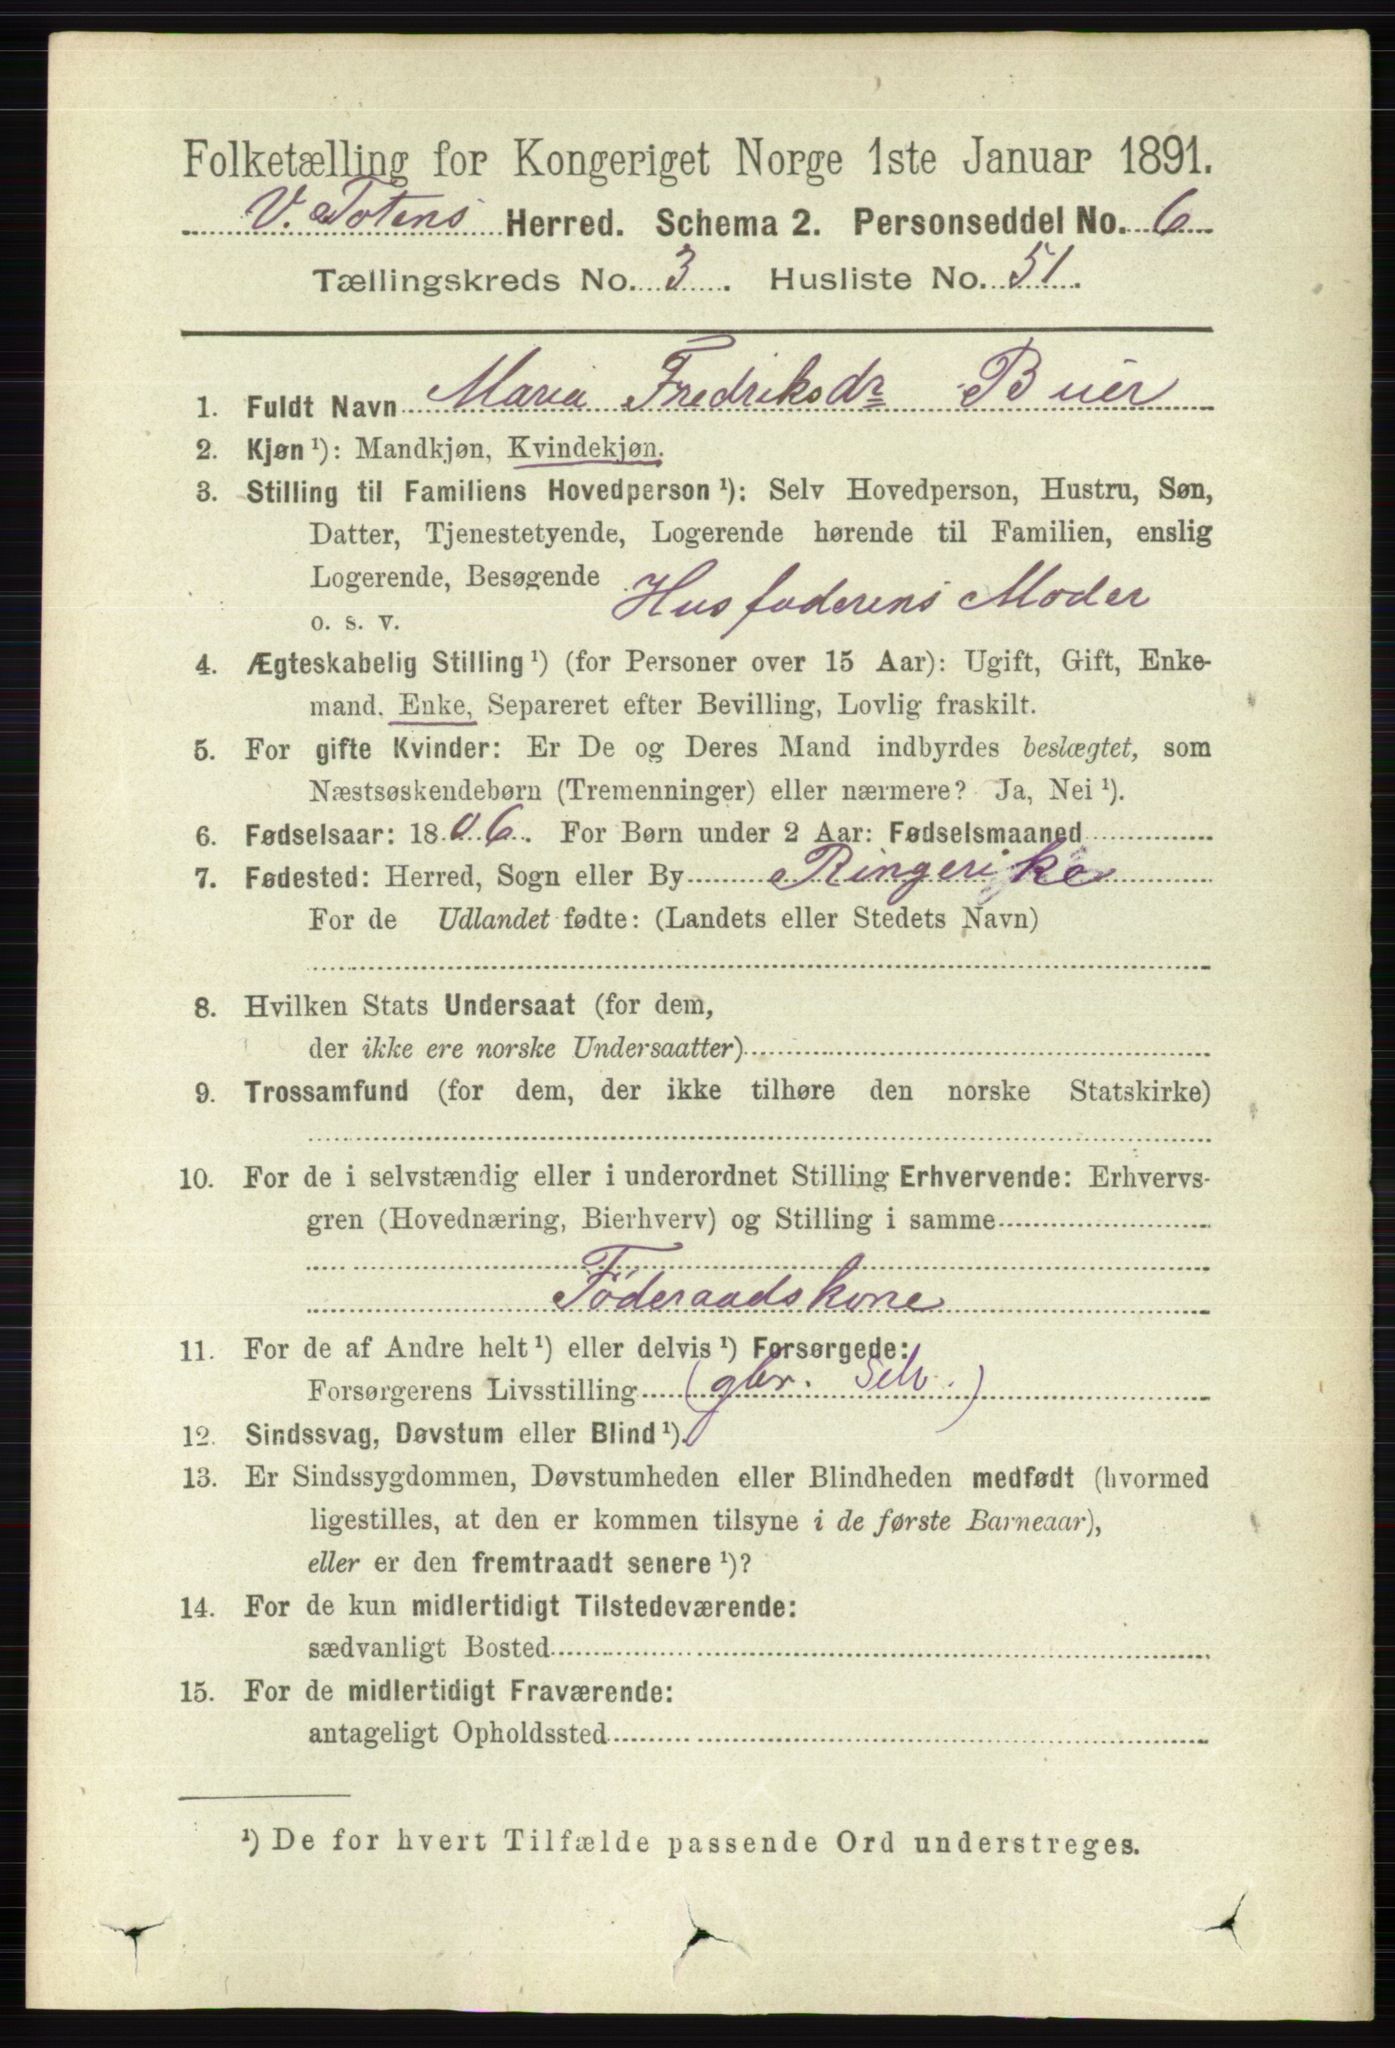 Folketælling for Kongeriget Norge 1ste Januar 1891.
V. Totens Herred. Schema 2. Personseddel No. 6
Tællingskreds No. 3. Husliste No. 51.
1. Fuldt Navn Maria Fredriksdr Buer
2. Kjøn ¹): Mandkjøn, Kvindekjøn.
3. Stilling til Familiens Hovedperson ¹): Selv Hovedperson, Hustru, Søn,
Datter, Tjenestetyende, Logerende hørende til Familien, enslig
Logerende, Besøgende
o. s. v. Husfaderens Moder
4. Ægteskabelig Stilling ¹) (for Personer over 15 Aar): Ugift, Gift, Enke-
mand, Enke, Separeret efter Bevilling, Lovlig fraskilt.
5. For gifte Kvinder: Er De og Deres Mand indbyrdes beslægtet, som
Næstsøskendebørn (Tremenninger) eller nærmere? Ja, Nei ¹).
6. Fødselsaar: 1806. For Børn under 2 Aar: Fødselsmaaned
7. Fødested: Herred, Sogn eller By Ringerike
For de Udlandet fødte: (Landets eller Stedets Navn)
8. Hvilken Stats Undersaat (for dem,
der ikke ere norske Undersaatter)
9. Trossamfund (for dem, der ikke tilhøre den norske Statskirke)
10. For de i selvstændig eller i underordnet Stilling Erhvervende: Erhvervs-
gren (Hovednæring, Bierhverv) og Stilling i samme
Föderaadskone
11. For de af Andre helt ¹) eller delvis ¹) Forsørgede:
Forsørgerens Livsstilling (gbr. Selv.)
12. Sindssvag, Døvstum eller Blind ¹).
13. Er Sindssygdommen, Døvstumheden eller Blindheden medfødt (hvormed
ligestilles, at den er kommen tilsyne i de første Barneaar),
eller er den fremtraadt senere ¹)?
14. For de kun midlertidigt Tilstedeværende:
sædvanligt Bosted
15. For de midlertidigt Fraværende:
antageligt Opholdssted
¹) De for hvert Tilfælde passende Ord understreges.